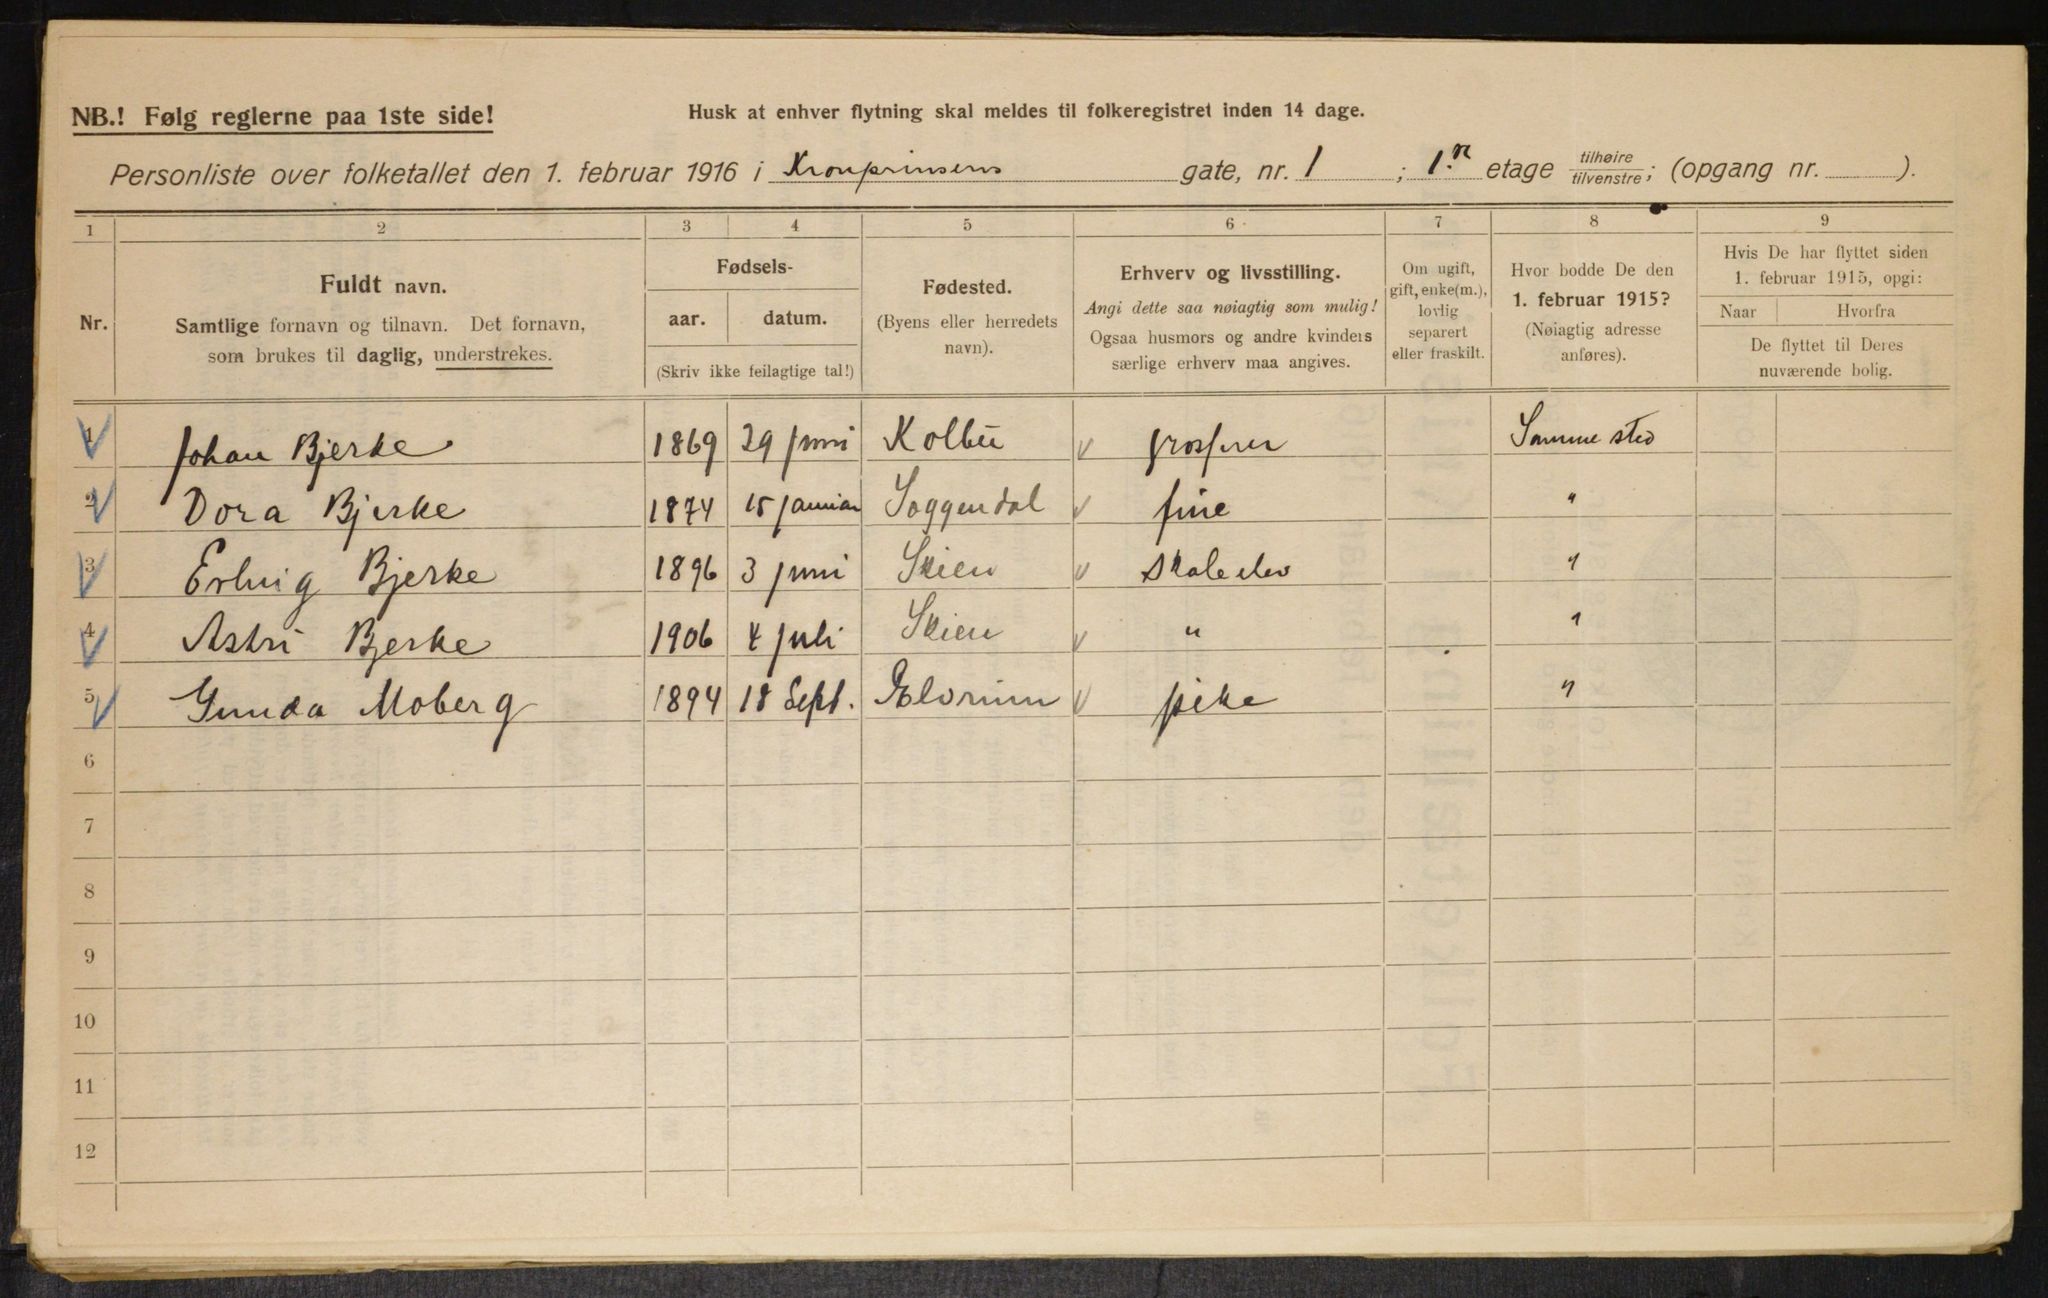 NB.! Følg reglerne paa 1ste side!
Husk at enhver flytning skal meldes til folkeregistret inden 14 dage.
Personliste over folketallet den 1. februar 1916 i Kronprinsens gate, nr. 1 ; 1. etage tilhøire tilvenstre; (opgang nr. ).
1 2 3 4 5 6 7 8 9
Nr.
Fuldt navn.
Samtlige fornavn og tilnavn. Det fornavn,
som brukes til daglig, understrekes.
Fødsels-
aar. datum.
(Skriv ikke feilagtige tal!)
Fødested.
(Byens eller herredets
navn).
Erhverv og livsstilling.
Angi dette saa nøiagtig som mulig!
Ogsaa husmors og andre kvinders
særlige erhverv maa angives.
Om ugift,
gift, enke(m.),
lovlig
separert
eller fraskilt.
Hvor bodde De den
1. februar 1915?
(Nøiagtig adresse
anføres).
Hvis De har flyttet siden
1. februar 1915, opgi:
Naar Hvorfra
De flyttet til Deres
nuværende bolig.
1 Johan Bjerke 1869 29 juni Kolbu Samme sted
2 Dora Bjerke 1874 15 januar Soggendal frue "
3 Erling Bjerke 1896 3 juni Skien Skoleelev "
4 Astri Bjerke 1906 4 juli Skien " "
5 Gunda Moberg 1894 18 Sept. Elverum pike "
6
7
8
9
10
11
12